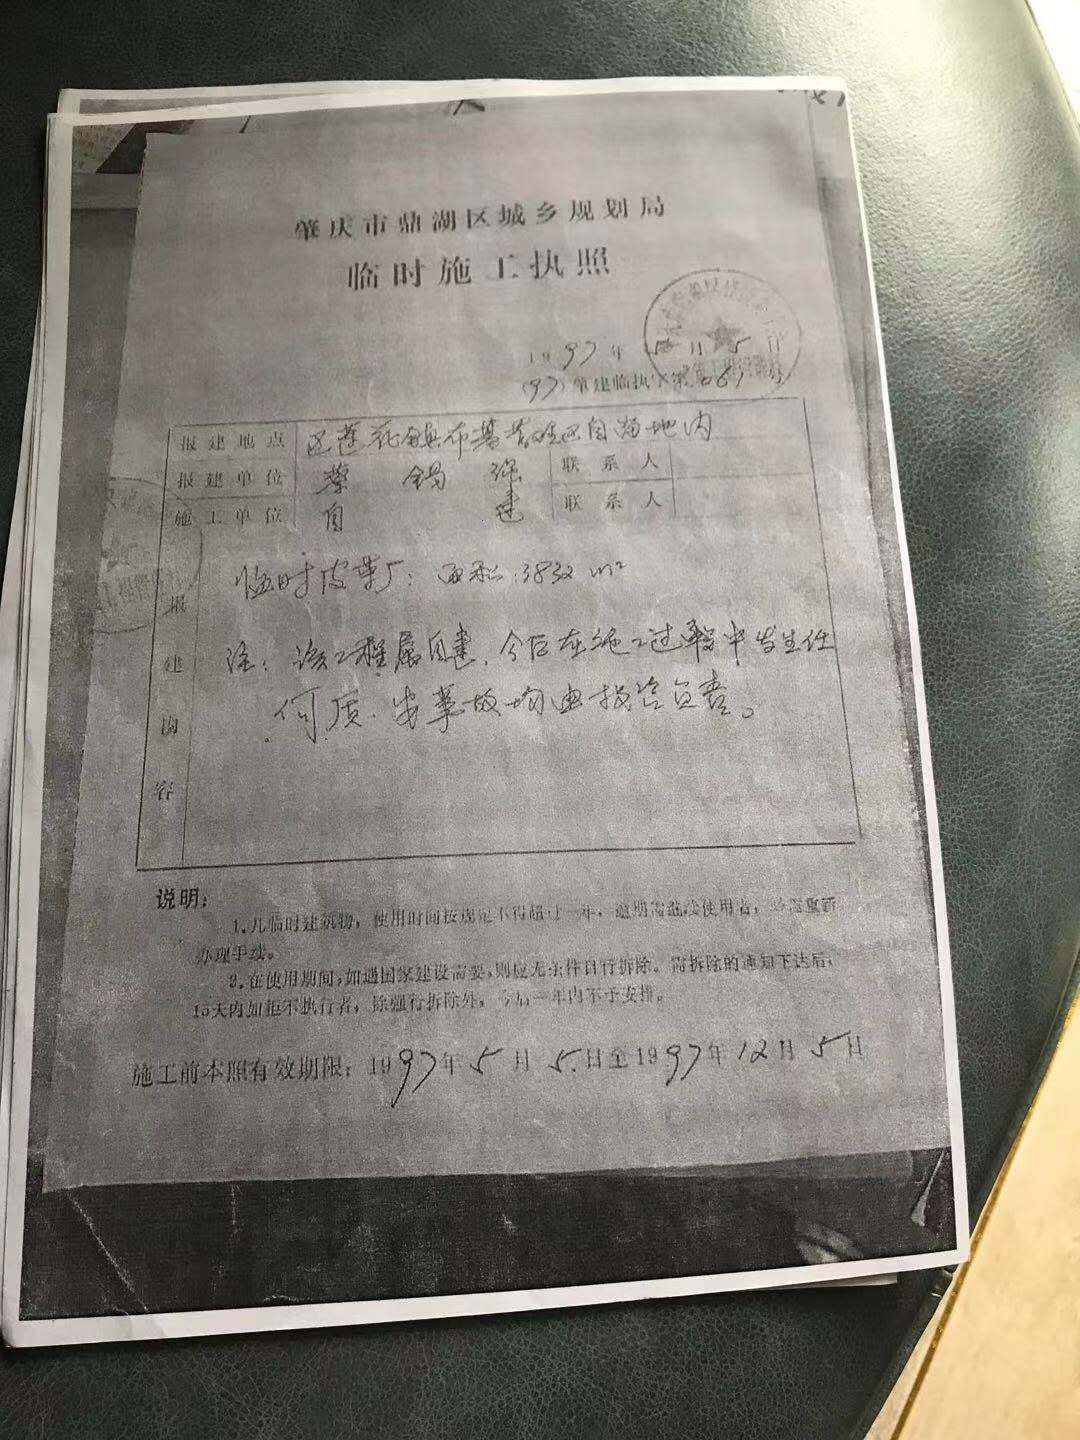 肇庆市鼎湖区城乡规划局
临时施工执照
1997年5月5日
(97)肇建临执字第
报建地点 区莲花镇布基 区自留地内
报建单位 蔡锡强 联系人
施工单位 自建 联系人
报建内容
临时皮革厂：面积：3832 m²
注：该工程属自建，今后在施工过程中发生任
何质、安事故均由投资负责。
说明：
1.凡临时建筑物，使用时间按规定不得超过一年，逾期需继续使用者，必需重新
办理手续。
2.在使用期间，如遇国家建设需要，则应无条件自行拆除。需拆除的通知下达后，
15天内如拒不执行者，除强行拆除外，今后一年内不予安排。
施工前本照有效期限：1997年5月5日至1997年12月5日